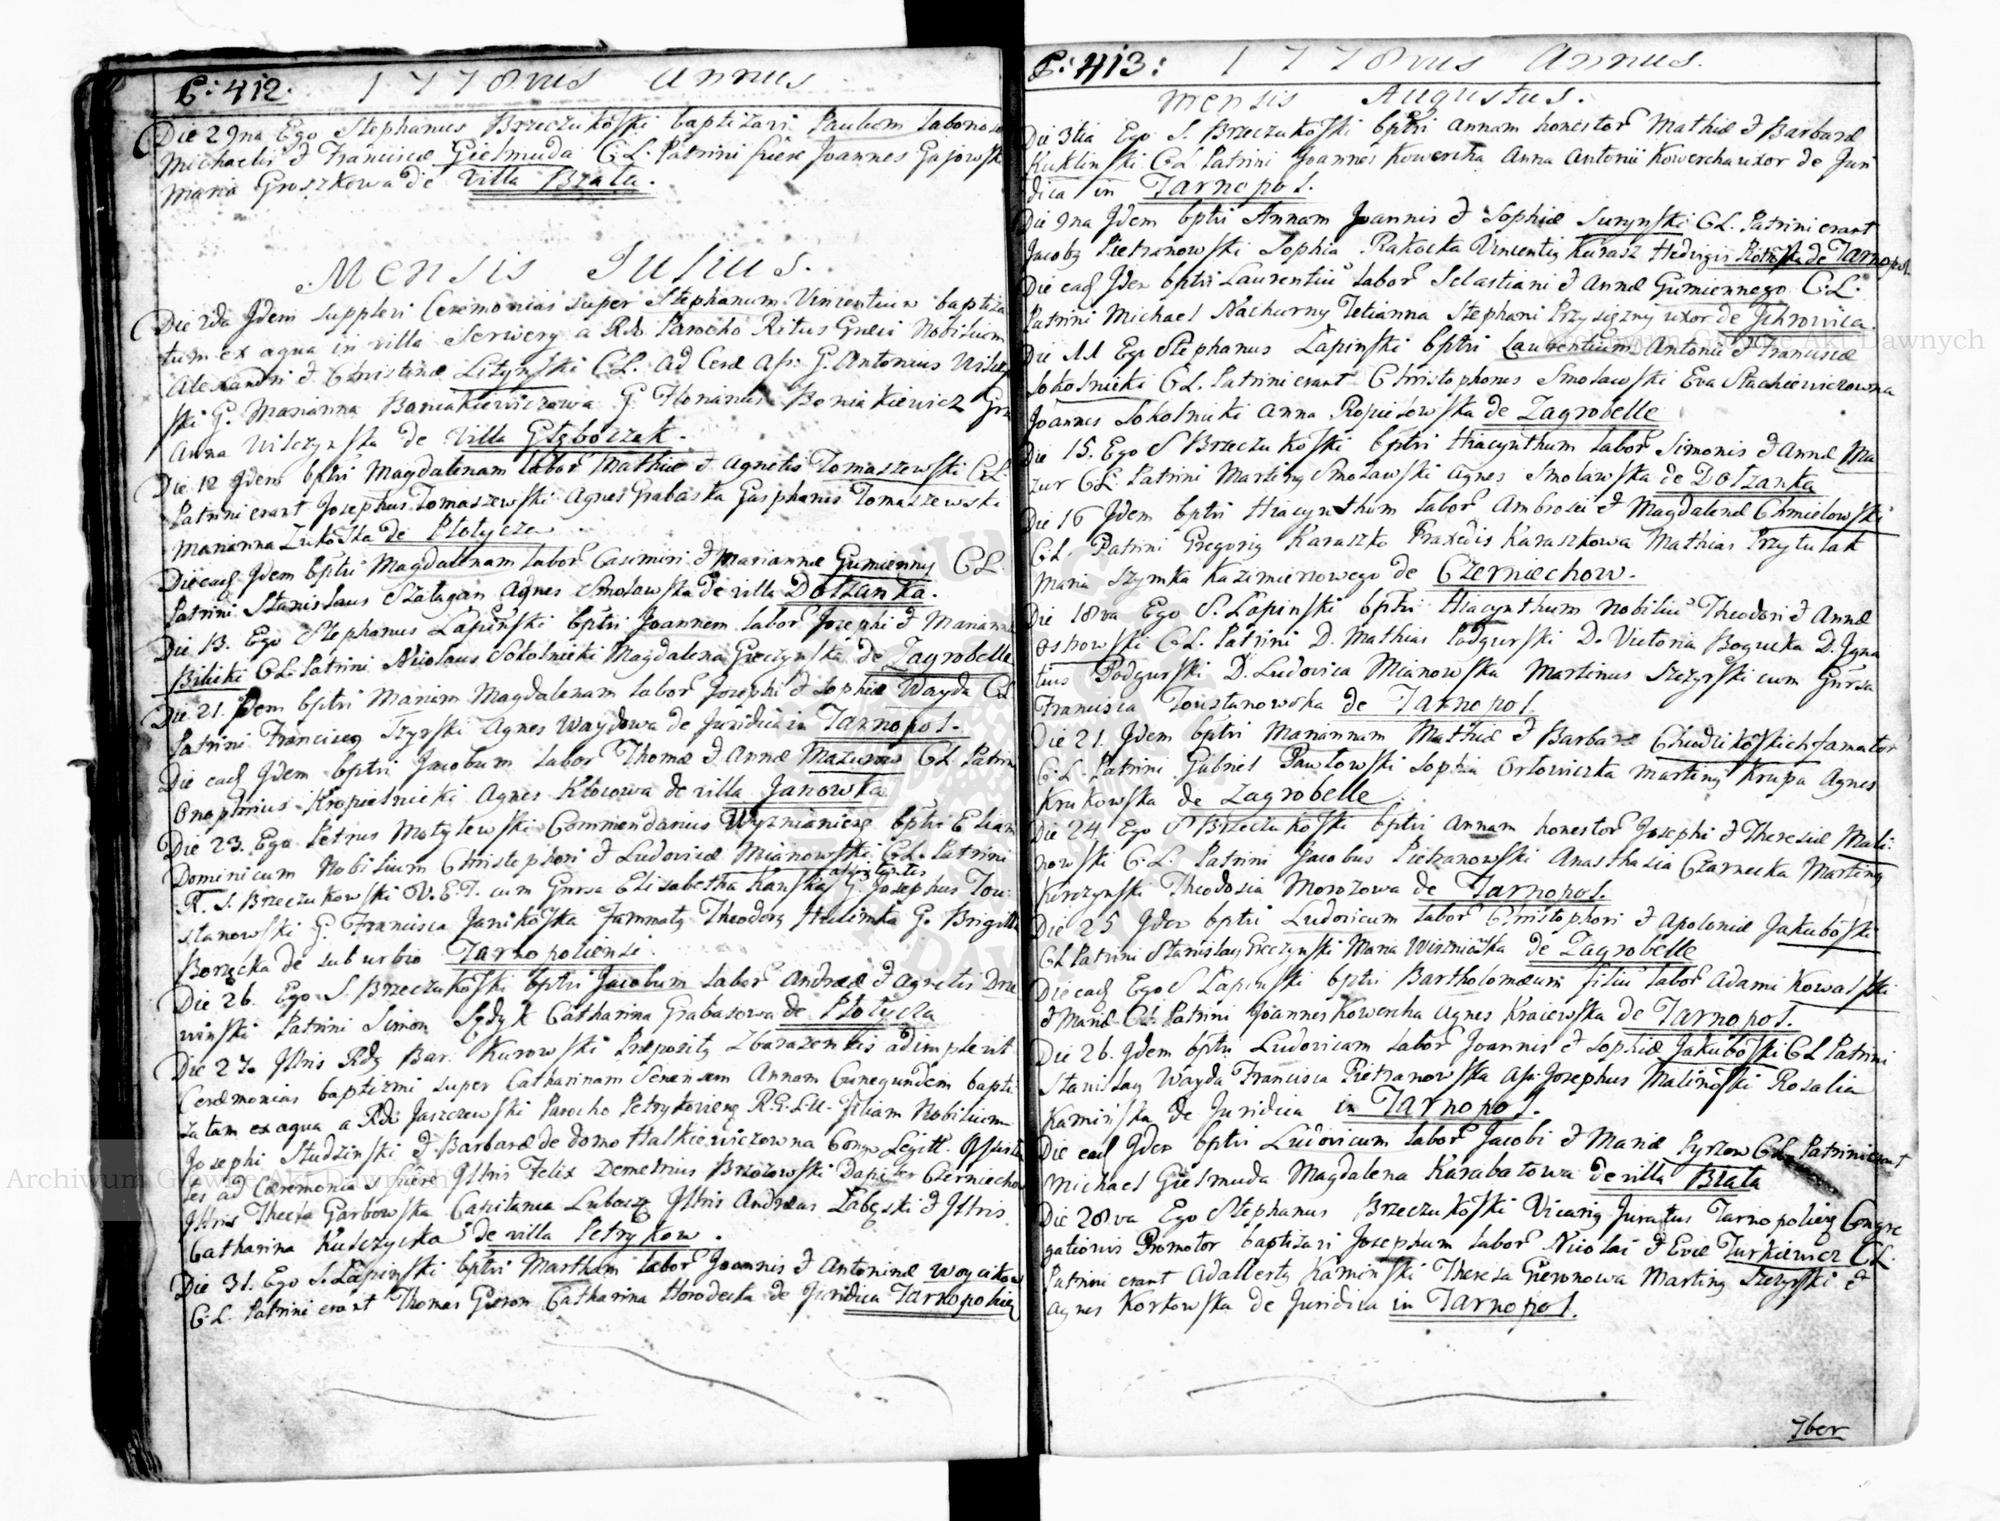 P: 412. 1778vus Annus
Die 29na Ego Stephanus Brzeczukoski baptizavi Paulum laborios
Michaelis & Franciscæ Gielmuda C.L. Patrini fuere Joannes Gajowski
Maria Groszkowa de Villa Biała.
Mensis Julius.
Die 2da Idem supplevi Ceremonias super Stephanum Vincentium baptiza
tum ex aqua in villa Serwery a Rdo Parocho Ritus Græci Nobilium
Alexandri & Christinæ Litynski C.L. Ad Cere Ass: G. Antonius Wilczyn
ski G. Marianna Boniakiewiczowa G. Florianus Boniakiewicz Gr
Anna Wilczynska de Villa Głęboczek.
Die 12 Idem bptvi Magdalenam labor Mathiæ & Agnetis Tomaszewski C.L.
Patrini erant Josephus Tomaszewski Agnes Grabaska Gasphanus Tomaszewski
Marianna Zukoska de Płotycza
Die ead Idem bptvi Magdalenam labor Casimiri & Mariannæ Gumienny C.L.
Patrini Stanislaus Szatagan Agnes Smolawska de villa Dołzanka.
Die 13. Ego Stephanus Łapinski bptvi Joannem labor Josephi & Mariannæ
Bilicki C.L. Patrini Nicolaus Sokolnicki Magdalena Greczynska de Zagrobelle
Die 21. Idem bptvi Mariam Magdalenam labor Josephi & Sophiæ Wayda C.L.
Patrini Franciscq Szyrski Agnes Waydowa de Juridica in Tarnopol.
Die ead Idem bptvi Jacobum labor Thomæ & Annæ Mazurow C.L. Patrini
Onophrius Kropielnicki Agnes Kłocowa de villa Janowka
Die 23. Ego Petrus Motylewski Commendarius Wyznianicen bptvi Eliam
Dominicum Nobilium Christophori & Ludovicæ Mianowski C.L. Patrini
R. S. Brzeczukowski V.E.T. cum Gnrsa Elisabetha Kanska assistentes G. Josephus Tou:
stanowski G. Francisca Janikoska Fammatq Theodorq Hulimka G. Brigitta
Borzęcka de suburbio Tarnopoliensi.
Die 26. Ego S. Brzeczukoski bptvi Jacobum labor Andreæ & Agnetis Drze
winski Patrini Simon Sydyk Catharina Grabasowa de Płotycza
Die 27. Illris Rdq Bar. Kurowski Præpositq Zbarazensis adimplevit
Ceræmonias baptizmi super Catharinam Senensem Annam Cunegundem bapti
zatam ex aqua a Rdo Jaszczewski Parocho Petrykovieng R.G.L.U. filiam Nobilium
Josephi Studzinski & Barbaræ de domo Halkiewiczowna Cong. Legit. Assisten
tes ad Cæremonia fuere Illris Felix Demetrius Brzozowski Dapifer Czerniechow
Illris Thecla Garbowska Capitanea Lubacz Illris Andreas Zabęski & Illris
Catharina Kulczycka de villa Petrykow.
Die 31. Ego S. Łapinski bptvi Martham labor Joannis & Antoninæ Woycikow
C.L. Patrini erant Thomas Gieron Catharina Horodecka de Juridica Tarnopolieng
P: 413: 1778vus Annus.
Mensis Augustus.
Die 3tia Ego S. Brzeczukoski bptvi Annam honestor Mathiæ & Barbaræ
Kuklinski C.L. Patrini Joannes Kowercha Anna Antonii Kowercha uxor de Juri
dica in Tarnopol.
Die 9na Idem bptvi Annam Joannis & Sophiæ Surynski C.L. Patrini erant
Jacobq Pietranowski Sophia Rakocka Vincentiq Kurasz Hedvigis de Tarnopol
Die ead Idem bptvi Laurentiu labor Sebastiani & Annæ Gumiennego C.L.
Patrini Michael Nachurny Tetianna Stephani Przysięzny uxor de Ihrowica.
Die 11 Ego Stephanus Łapinski bptvi Laurentium Antonii & Franciscæ
Sokolnicki C.L. Patrini erant Christophorus Smolawski Eva Stachiewiczowna
Joannes Sokolnicki Anna Ropielowska de Zagrobelle
Die 15. Ego S Brzeczukoski bptvi Hiacynthum labor Simonis & Annæ Ma
zur C.L. Patrini Martinq Smolawski Agnes Smolawska de Dołzanka
Die 16 Idem bptvi Hiacynthum labor Ambrosii & Magdalenæ Chmielowski
C.L. Patrini Gregoriq Karaszko Praxedis Karaszkowa Mathias Przytulak
Maria Szymka Kazimierzowego de Czerniechow.
Die 18va Ego S. Łapinski bptvi Hiacynthum Nobiliu Theodori & Annæ
Osnowski C.L. Patrini D. Mathias Podgurski D. Victoria Bogucka D. Igna
tius Podgurski D. Ludovica Mianowska Martinus Szczyrski cum Gnrsa
Francisca Toustanowska de Tarnopol.
Die 21. Idem bptvi Mariannam Mathiæ & Barbaræ Chudzikoskich famator
C.L. Patrini Gabriel Pawłowski Sophia Orłowiczka Martinq Krupa Agnes
Krukowska de Zagrobelle.
Die 24. Ego S Brzeczukoski bptvi Annam honestor Josephi & Theresiæ Mali:
nowski C.L. Patrini Jacobus Pietranowski Anasthasia Czarnecka Martinq
Korczynski Theodosia Morozowa de Tarnopol.
Die 25 Idem bptvi Ludovicum labor Christophori & Apoloniæ Jakuboski
C.L Patrini Stanislaq Greczynski Maria Wiszniowska de Zagrobelle
Die ead Ego S Łapinski bptvi Bartholomæum filiu labor Adami Kowalski
& Mariæ C.L. Patrini Joannes Kowercha Agnes Kraiewska de Tarnopol.
Die 26. Idem bptvi Ludovicam labor Joannis & Sophiæ Jakuboski C.L Patrini
Stanislaq Wayda Francisca Pietranowska Ass: Josephus Malinoski Rosalia
Kaminska de Juridica in Tarnopol.
Die ead Idem bptvi Ludovicum labor Jacobi & Mariæ Syrzow C.L. Patrini erant
Michael Gielmuda Magdalena Karabatowa de villa Biała
Die 28va Ego Stephanus Brzeczukoski Vicariq Juratus Tarnopolieng Congre
gationis Promotor baptizavi Josephum labor Nicolai & Evæ Turkiewicz C.L.
Patrini erant Adalbertq Kaminski Theresa Gieronowa Martinq Szczyrski &
Agnes Korkowska de Juridica in Tarnopol.
7ber
Archiwum Główne Akt Dawnych
Archiwum Główne Akt Dawnych